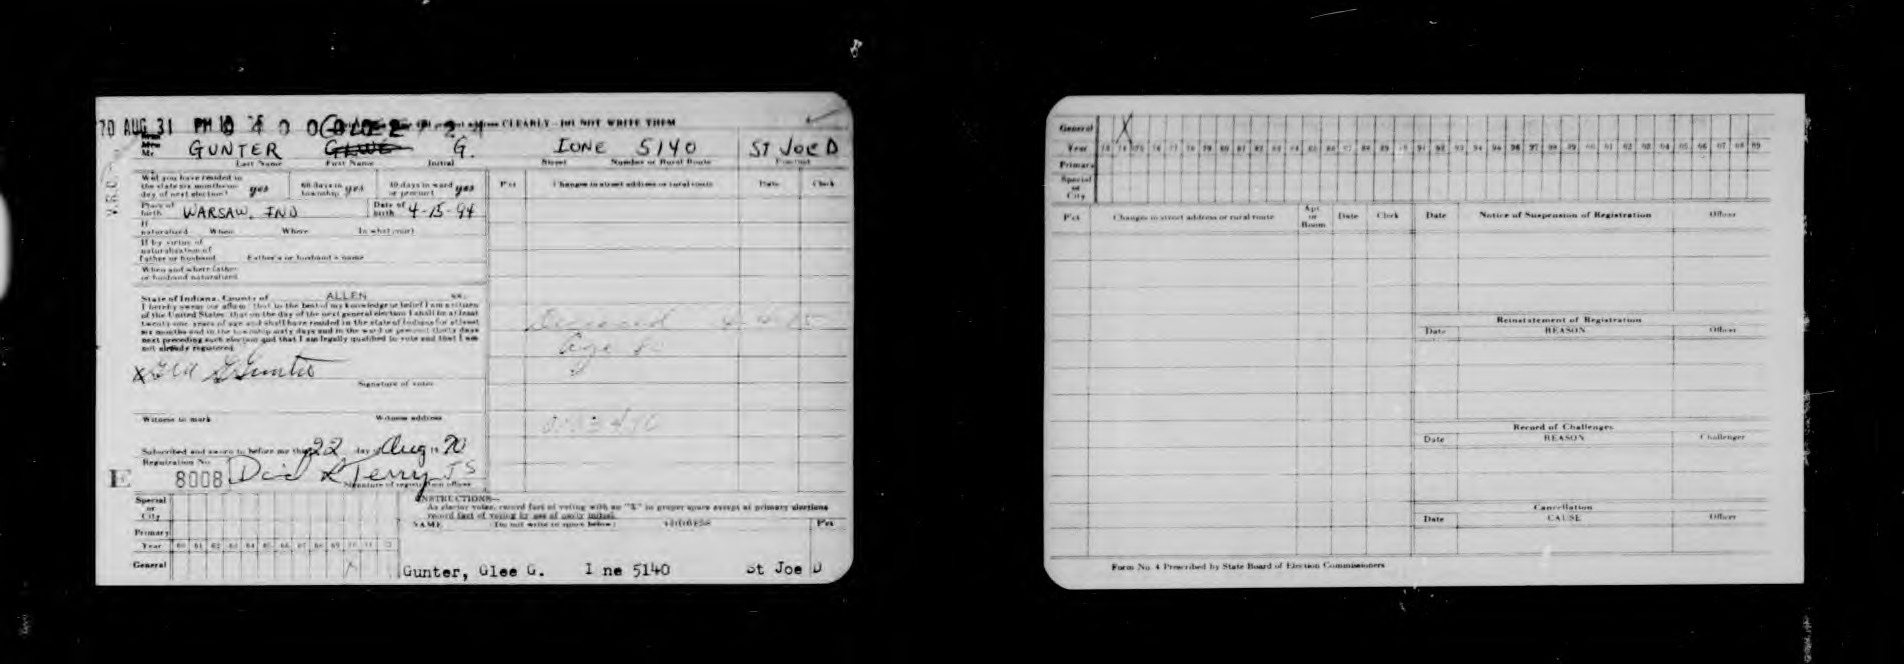 70 AUG 31 PM
CLEARLY - DO NOT WRITE THEM
Mrs
Mr.
GUNTER G. IONE 5140 ST JOE D
Last Name First Name Initial Street Number or Rural Route Precinct
V.R.C.
Will you have resided in the state six months on day of next election? yes 60 days in township yes 30 days in ward or precinct yes
Pct Changes in street address or rural route Date Clerk
Place of birth WARSAW, IND Date of birth 4-15-94
If naturalized When Where In what court
If by virtue of naturalization of Father or husband Father's or husband's name
When and where father or husband naturalized
State of Indiana, County of ALLEN ss:
I hereby swear or affirm that to the best of my knowledge or belief I am a citizen
of the United States, that on the day of the next general election I shall be at least
twenty-one years of age and shall have resided in the state of Indiana for at least
six months and in the township sixty days and in the ward or precinct thirty days
next preceding such election and that I am legally qualified to vote and that I am
not already registered.
Deceased
Age
X Gunter
Signature of voter
Witness to mark Witness address
Subscribed and sworn to before me this 22 day of Aug 19 70
Registration No.
E 8008 Terry
Signature of registration officer
Special or City
Primary
Year 60 61 62 63 64 65 66 67 68 69 70 71 72
General X
INSTRUCTIONS—
As elector votes, record fact of voting with an "X" in proper space except at primary elections
record fact of voting by use of party initial.
NAME (Do not write in space below) ADDRESS Pct
Gunter, Glee G. I ne 5140 St Joe D
General X
Year 73 74 75 76 77 78 79 80 81 82 83 84 85 86 87 88 89 90 91 92 93 94 95 96 97 98 99 60 61 62 63 64 65 66 67 68 69
Primary
Special or City
Pct Changes in street address or rural route Apt. or Room Date Clerk Date Notice of Suspension of Registration Officer
Reinstatement of Registration
Date REASON Officer
Record of Challenges
Date REASON Challenger
Cancellation
Date CAUSE Officer
Form No. 4 Prescribed by State Board of Election Commissioners